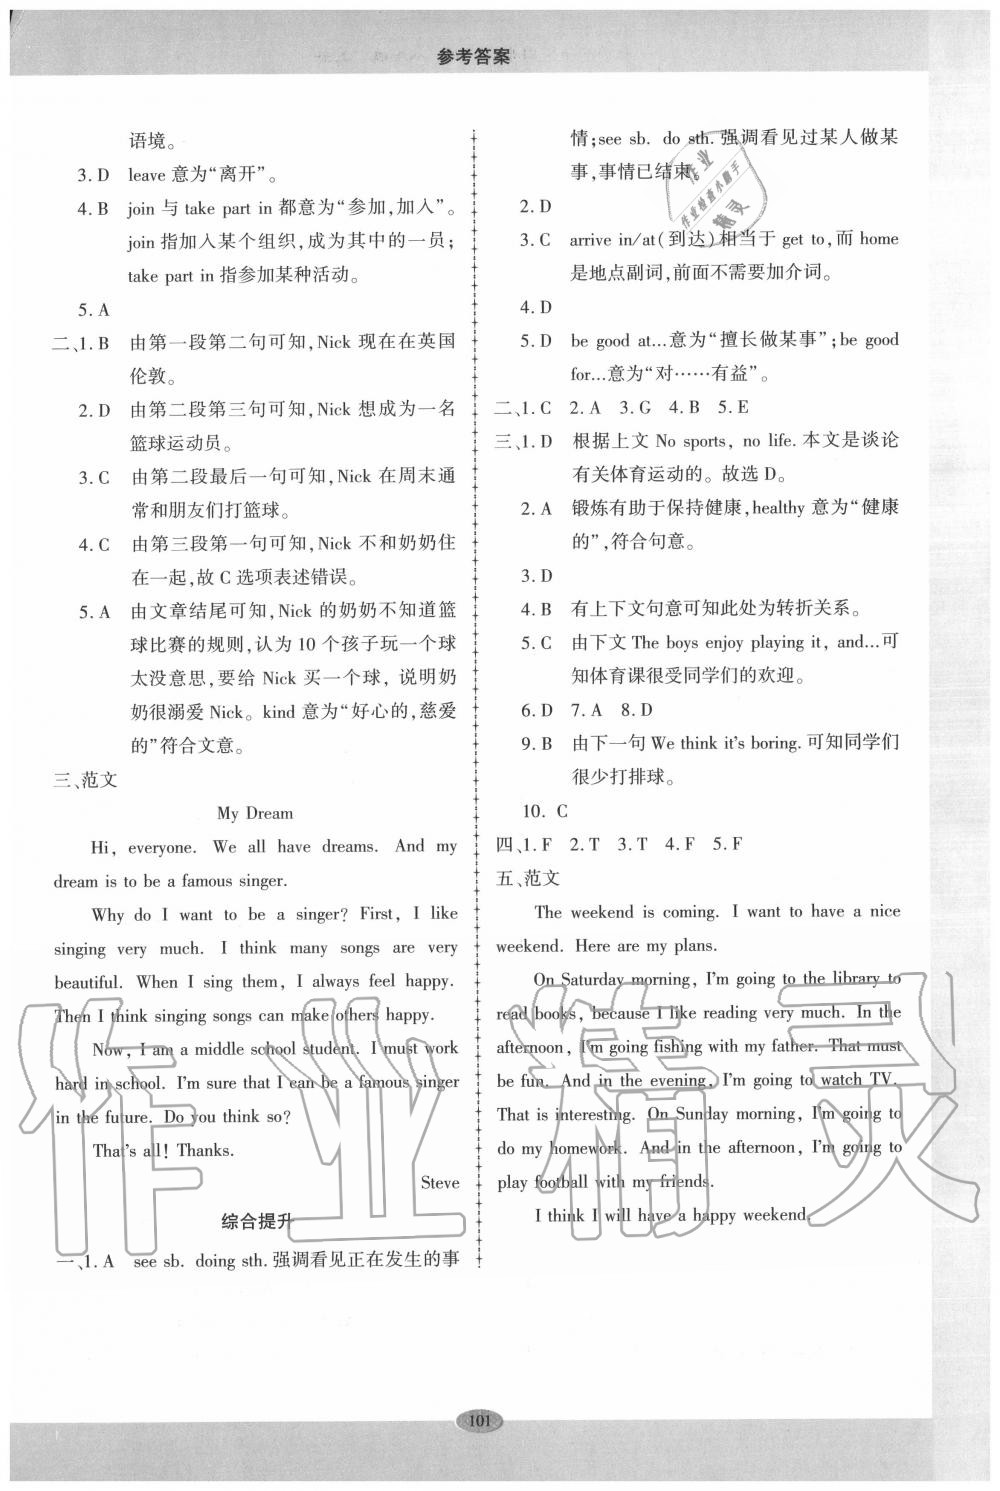 参考答案
语境。
3. D leave 意为“离开”。
4. B join 与 take part in 都意为“参加,加入”。
join 指加入某个组织,成为其中的一员;
take part in 指参加某种活动。
5. A
二、1. B 由第一段第二句可知,Nick 现在在英国
伦敦。
2. D 由第二段第三句可知,Nick 想成为一名
篮球运动员。
3. C 由第二段最后一句可知,Nick 在周末通
常和朋友们打篮球。
4. C 由第三段第一句可知,Nick 不和奶奶住
在一起,故 C 选项表述错误。
5. A 由文章结尾可知,Nick 的奶奶不知道篮
球比赛的规则,认为 10 个孩子玩一个球
太没意思,要给 Nick 买一个球, 说明奶
奶很溺爱 Nick。kind 意为“好心的,慈爱
的”符合文意。
三、范文
My Dream
Hi, everyone. We all have dreams. And my
dream is to be a famous singer.
Why do I want to be a singer? First, I like
singing very much. I think many songs are very
beautiful. When I sing them, I always feel happy.
Then I think singing songs can make others happy.
Now, I am a middle school student. I must work
hard in school. I'm sure that I can be a famous singer
in the future. Do you think so?
That's all! Thanks.
Steve
综合提升
一、1. A see sb. doing sth. 强调看见正在发生的事
情;see sb. do sth. 强调看见过某人做某
事,事情已结束。
2. D
3. C arrive in/at(到达)相当于 get to,而 home
是地点副词,前面不需要加介词。
4. D
5. D be good at…意为“擅长做某事”;be good
for…意为“对……有益”。
二、1. C 2. A 3. G 4. B 5. E
三、1. D 根据上文 No sports, no life. 本文是谈论
有关体育运动的。故选 D。
2. A 锻炼有助于保持健康,healthy 意为“健康
的”,符合句意。
3. D
4. B 有上下文句意可知此处为转折关系。
5. C 由下文 The boys enjoy playing it, and…可
知体育课很受同学们的欢迎。
6. D 7. A 8. D
9. B 由下一句 We think it's boring. 可知同学们
很少打排球。
10. C
四、1. F 2. T 3. T 4. F 5. F
五、范文
The weekend is coming. I want to have a nice
weekend. Here are my plans.
On Saturday morning, I'm going to the library to
read books, because I like reading very much. In the
afternoon, I'm going fishing with my father. That must
be fun. And in the evening, I'm going to watch TV.
That is interesting. On Sunday morning, I'm going to
do my homework. And in the afternoon, I'm going to
play football with my friends.
I think I will have a happy weekend.
作业
作业检查小助手
精灵
作业精灵
101